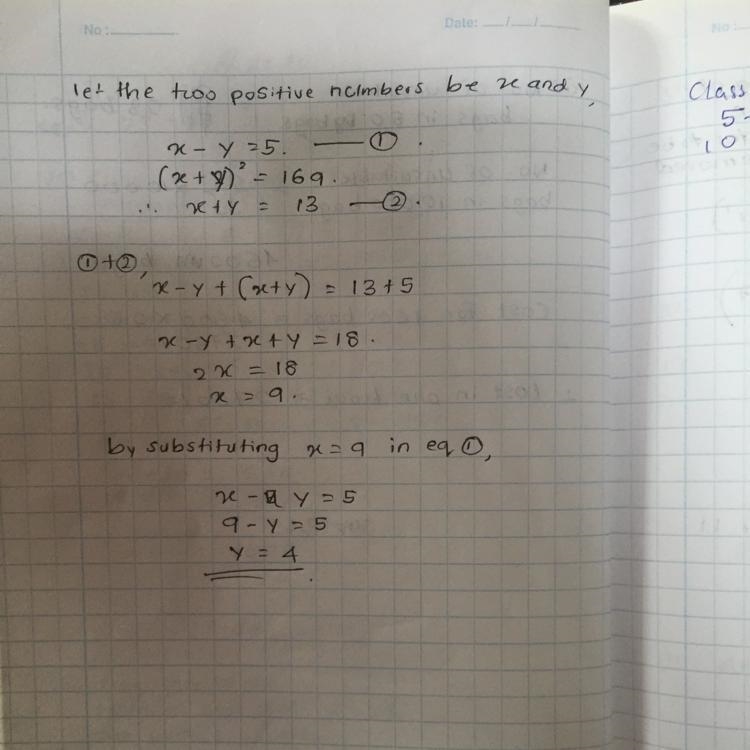 No :
Date: __/__/__
let the two positive numbers be x and y,
x - y = 5. —— ①.
(x + y)² = 169.
∴ x+y = 13 —②.
①+②,
x - y + (x+y) = 13 + 5
x - y + x + y = 18.
2x = 18
x = 9.
by substituting x = 9 in eq ①,
x - y = 5
9 - y = 5
y = 4
No :
Class
5-
10